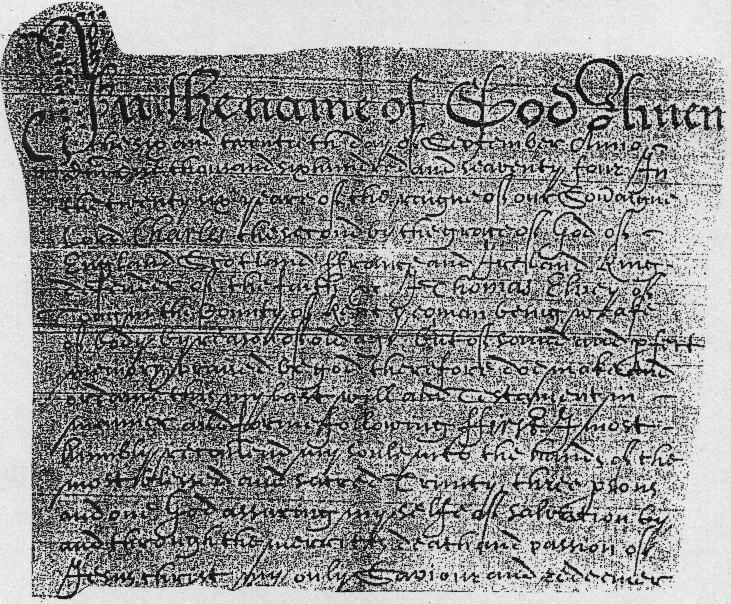 In the name of God Amen
the six and twenteth day of September Anno
thousand six hundred and seaventy four In
the twenty six yeare of the reigne of our Sovaigne
Lord Charles the second by the grace of God of
England Scotland ffrance and Ireland King
defender of the faith &c I Thomas of
in the County of Kent Yeoman being weake
of body by reason of old age but of sound and pfect
memory praysed be god therefore doe make and
ordaine this my last will and Testament in
manner and forme following ffirst I most
humbly recomend my soule into the hands of the
most blessed and sacred Trinity three psons
and one God assuring my selfe of salvation by
and through the merritts death and passion of
Jesus Christ my only Saviour and redeemer